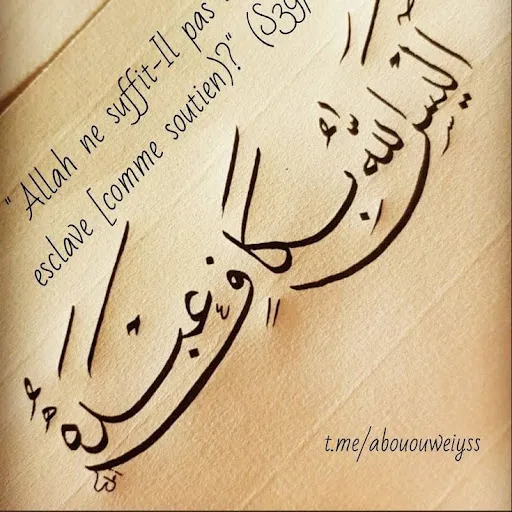 " Allah ne suffit-Il pas
esclave [comme soutien)?" (S39/
أليس الله بكافٍ عبده
t.me/abououweiyss